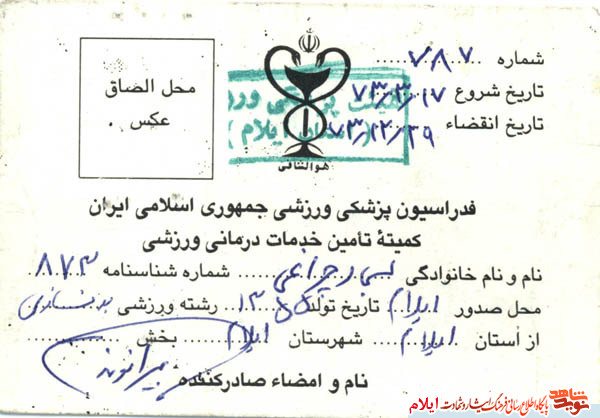 شماره ۷۸۷
تاریخ شروع ۷۳/۳/۱۷
تاریخ انقضاء ۷۳/۱۲/۲۹
محل الصاق
عکس .
پزشکی ورز
ایلام
هوالشافی
فدراسیون پزشکی ورزشی جمهوری اسلامی ایران
کمیتهٔ تأمین خدمات درمانی ورزشی
نام و نام خانوادگی شماره شناسنامه ۸۷۳
محل صدور ایلام تاریخ تولد رشته ورزشی
از استان ایلام شهرستان ایلام بخش
نام و امضاء صادرکننده
نوید شاهد پایگاه اطلاع رسانی فرهنگ ایثار و شهادت ایلام